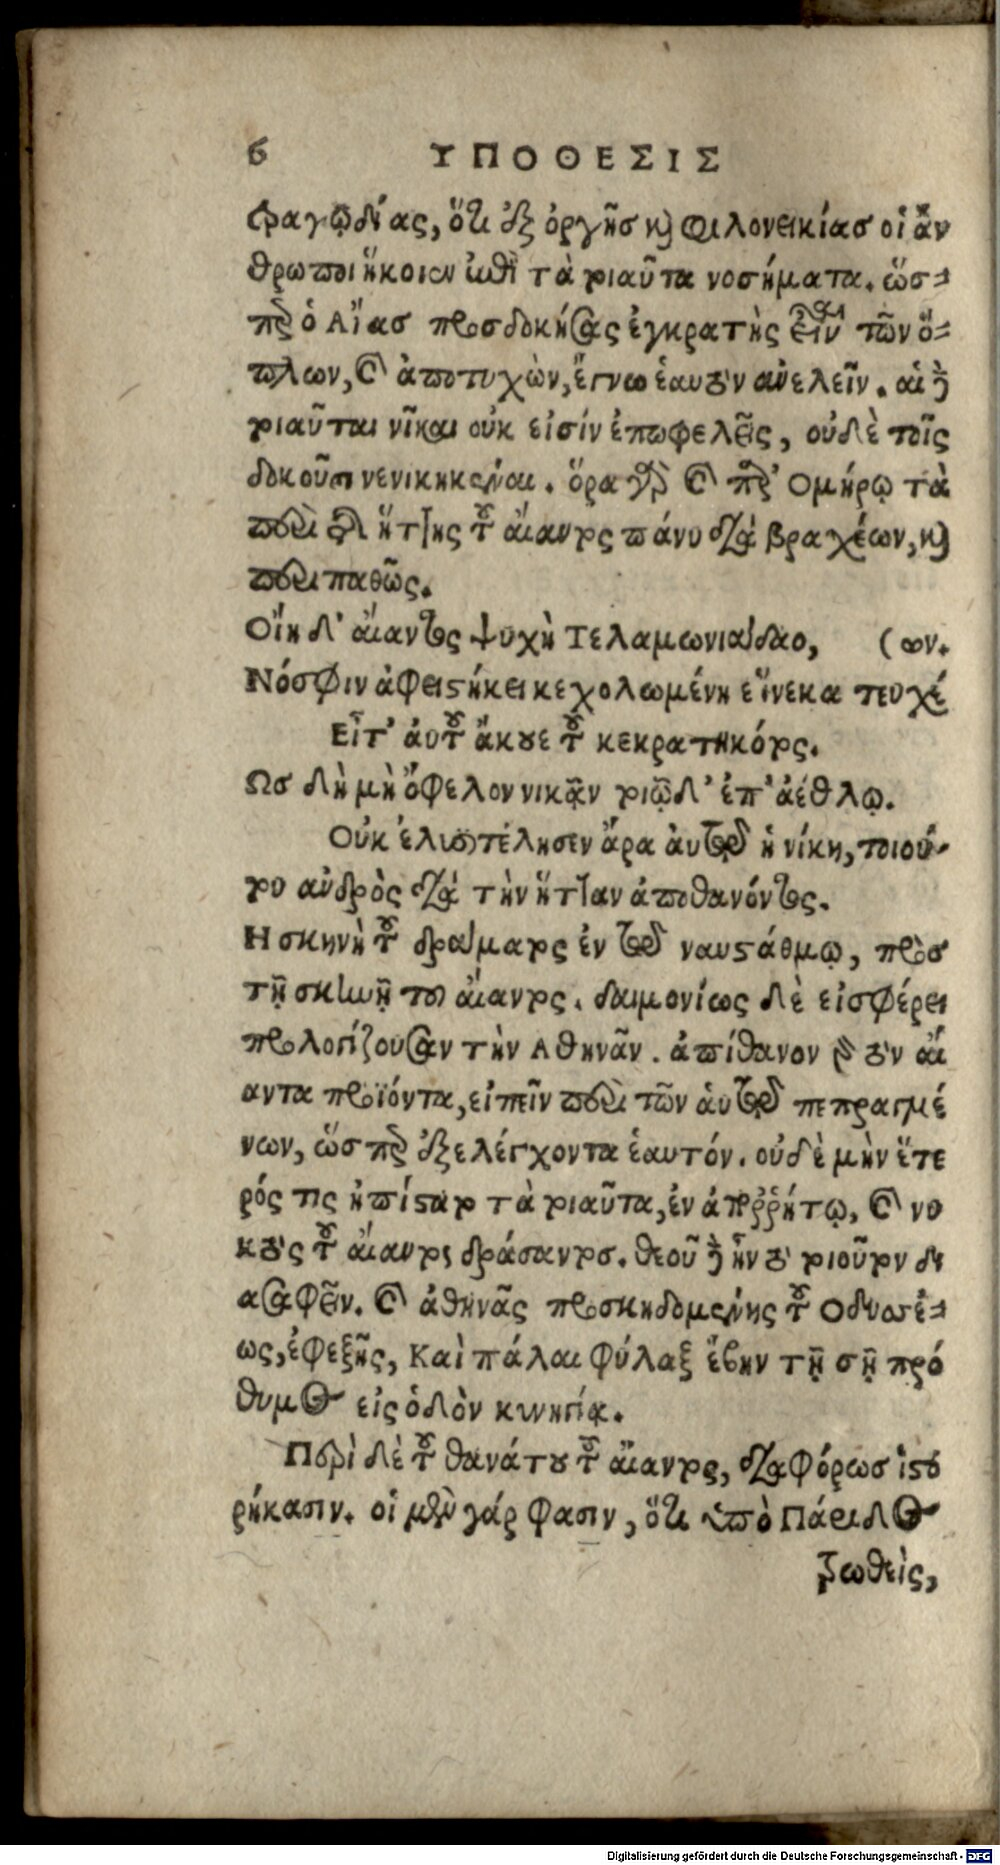 6 ΥΠΟΘΕΣΙΣ
τραγῳδίας, ὅτι ἐξ ὀργῆσ καὶ φιλονεικίασ οἱ ἄν
θρωποι ἥκοιεν ἐπὶ τὰ τοιαῦτα νοσήματα. ὥσ-
περ ὁ Αἴασ προσδοκήσας ἐγκρατὴς εἶναι τῶν ὅ-
πλων, καὶ ἀποτυχὼν, ἔγνω ἑαυτὸν ἀνελεῖν. αἱ δὲ
τοιαῦται νῖκαι οὐκ εἰσίν ἐπωφελεῖς, οὐδὲ τοῖς
δοκοῦσι νενικηκέναι. ὅρα γὰρ καὶ παρ' Ομήρῳ τὰ
περὶ τῆς ἥττης τοῦ αἴαντος πάνυ διὰ βραχέων, καὶ
περιπαθῶς.
Οἴη δ' αἴαντος ψυχὴ Τελαμωνιάδαο, (ων.
Νόσφιν ἀφειστήκει κεχολωμένη εἵνεκα τευχέ
Εἶτ' αὐτοῦ ἄκουε τοῦ κεκρατηκότος.
Ωσ δὴ μὴ ὄφελον νικᾷν τοιῷδ' ἐπ' ἀέθλῳ.
Οὐκ ἐλυσιτέλησεν ἄρα αὐτῷ ἡ νίκη, τοιού-
του ἀνδρὸς διὰ τὴν ἥτταν ἀποθανόντος.
Η σκηνὴ τοῦ δράματος ἐν τῷ ναυστάθμῳ, πρὸσ
τῇ σκηνῇ του αἴαντος. δαιμονίως δὲ εἰσφέρει
προλογίζουσαν τὴν Αθηνᾶν. ἀπίθανον γὰρ τὸν αἴ
αντα προϊόντα, εἰπεῖν περὶ τῶν αὑτῷ πεπραγμέ
νων, ὥσπερ ἐξελέγχοντα ἑαυτόν. οὐδὲ μὴν ἕτε
ρός τις ἠπίστατο τὰ τοιαῦτα, ἐν ἀπορρήτῳ, καὶ νυ
κτὸς τοῦ αἴαντος δράσαντοσ. θεοῦ δὲ ἦν τὸ τοιοῦτον δι
ασαφεῖν. καὶ ἀθηνᾶς προσκηδομένης τοῦ Οδυσσέ-
ως, ἐφεξῆς, Καὶ πάλαι φύλαξ ἔβην τῇ σῇ πρό
θυμος εἰς ὁδὸν κυνηγίᾳ.
Περὶ δὲ τοῦ θανάτου τοῦ αἴαντος, διαφόρωσ ἱστο
ρήκασιν. οἱ μὲν γάρ φασιν, ὅτι ὑπὸ Πάριδος
τρωθεὶς,
Digitalisierung gefördert durch die Deutsche Forschungsgemeinschaft - DFG